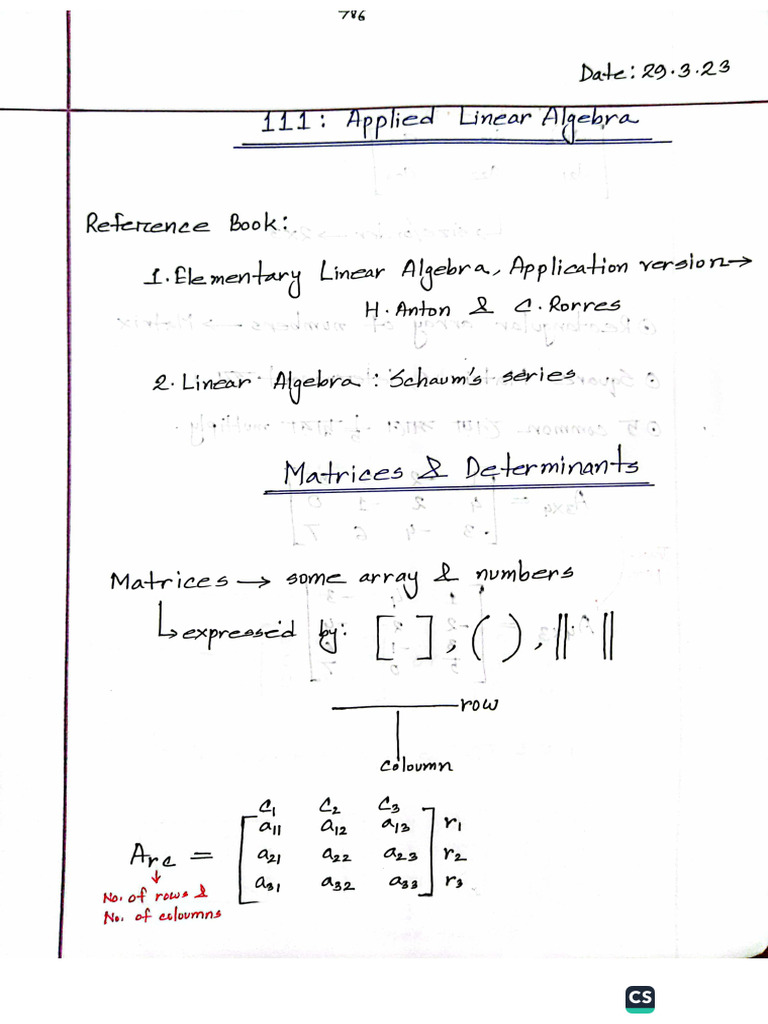 786
Date: 29.3.23
111: Applied Linear Algebra
Reference Book:
1. Elementary Linear Algebra, Application version →
H. Anton & C. Rorres
2. Linear Algebra : Schaum's series
Matrices & Determinants
Matrices → some array & numbers
↳ expressed by: [ ], ( ), || ||
row
coloumn
C₁ C₂ C₃
A_rc = [ a₁₁ a₁₂ a₁₃ ] r₁
a₂₁ a₂₂ a₂₃ r₂
a₃₁ a₃₂ a₃₃ r₃
↓
No. of rows &
No. of coloumns
CS